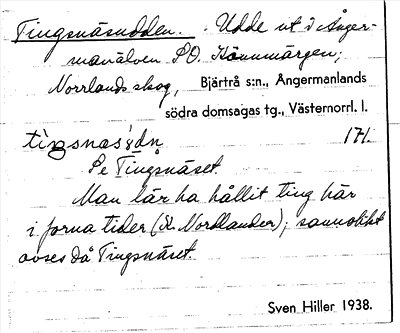 Tingsnäsudden. Udde ut i Ånger-
manälven SO. Hämmärgen;
Norrlands skog, Bjärtrå s:n., Ångermanlands
södra domsagas tg., Västernorrl. l.
tiŋsnas'ɤdn 171.
Se Tingsnäset.
Man lär ha hållit ting här
i forna tider (A. Nordlander); sannolikt
avses då Tingsnäset.
Sven Hiller 1938.